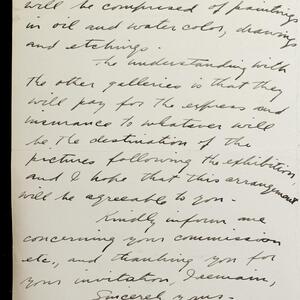 will be comprised of paintings
in oil and water color, drawings
and etchings.
The understanding with
the other galleries is that they
will pay for the express and
insurance to whatever will
be the destination of the
pictures following the exhibition
and I hope that this arrangement
will be agreeable to you.
Kindly inform me
concerning your commission
etc., and thanking you for
your invitation, I remain,
Sincerely yours